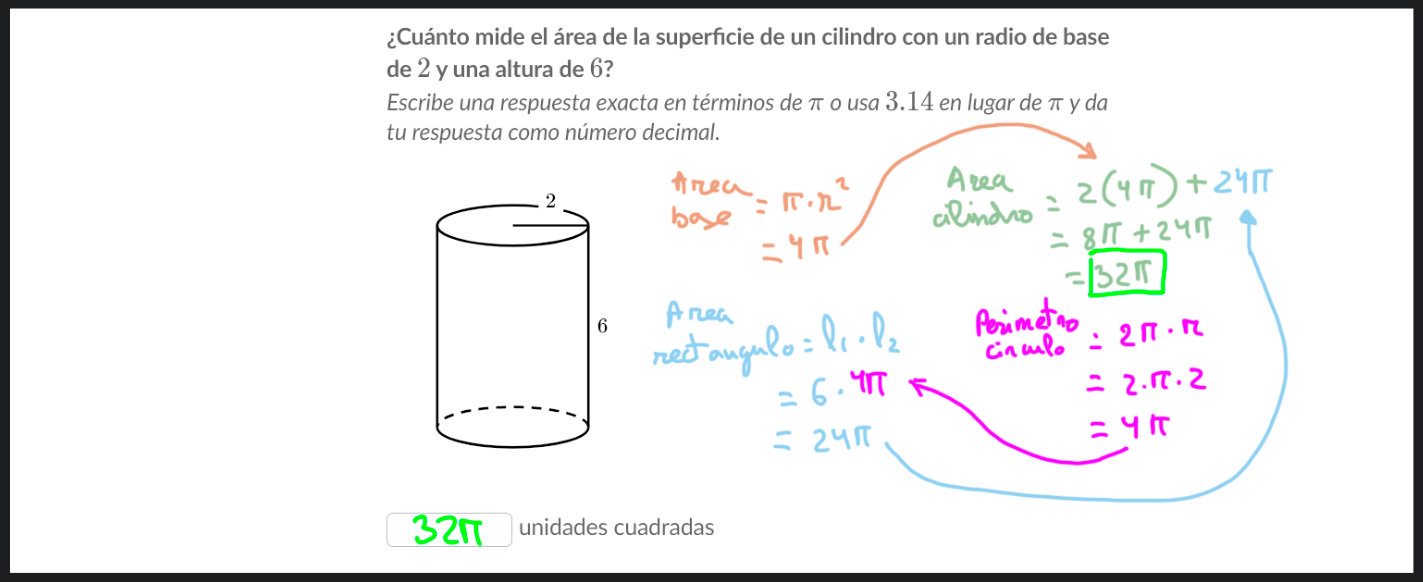 ¿Cuánto mide el área de la superficie de un cilindro con un radio de base
de 2 y una altura de 6?
Escribe una respuesta exacta en términos de π o usa 3.14 en lugar de π y da
tu respuesta como número decimal.
2
6
Area base = π · r²
= 4π
Area cilindro = 2(4π) + 24π
= 8π + 24π
= 32π
Area rectangulo = l₁ · l₂
= 6 · 4π
= 24π
Perimetro circulo = 2π · r
= 2 · π · 2
= 4π
32π unidades cuadradas